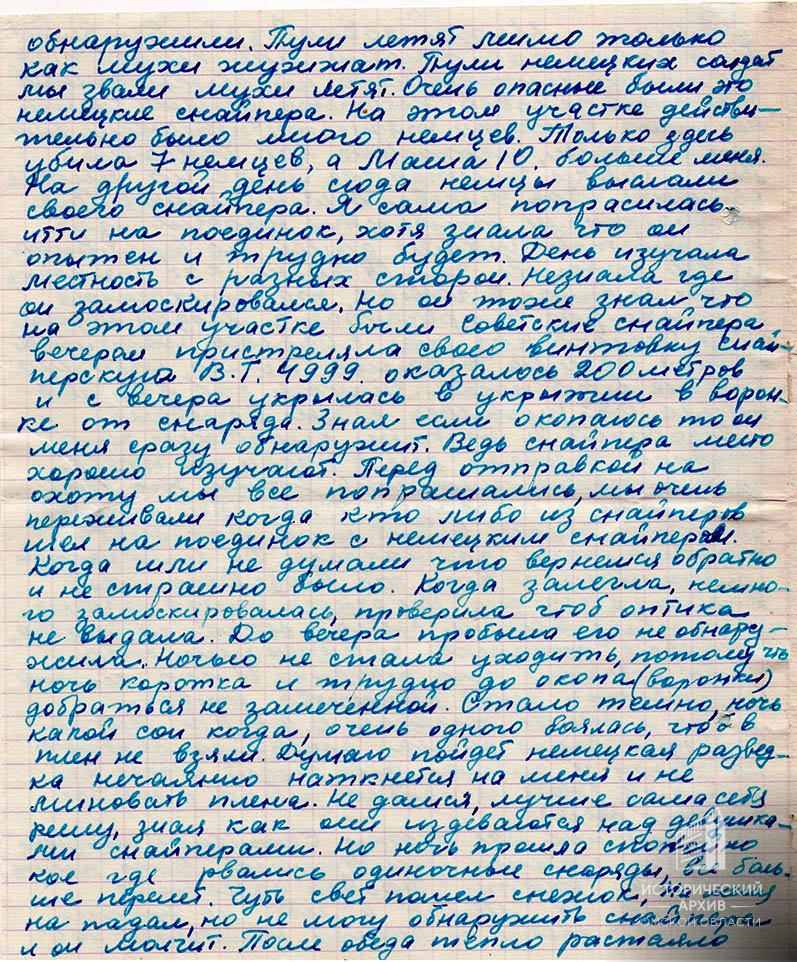 обнаружили. Пули летят мимо только
как мухи жужжат. Пули немецких солдат
мы звали мухи летят. Очень опасные были это
немецкие снайпера. На этом участке действи-
тельно было много немцев. Только здесь
убила 7 немцев, а Маша 10. больше меня.
На другой день сюда немцы выслали
своего снайпера. Я сама попрасилась
итти на поединок, хотя знала что он
опытен и трудно будет. День изучала
местность с разных сторон. Незнала где
он замоскировался. Но он тоже знал что
на этом участке были Советские снайпера
вечером пристреляла свою винтовку снай-
перскую В.Г. 4999. оказалось 200 метров
и с вечера укрылась в укрытии в ворон-
ке от снаряда. Знал если окопаюсь то он
меня сразу обнаружит. Ведь снайпера место
хорошо изучают. Перед отправкой на
охоту мы все попращались, мы очень
переживали когда кто либо из снайперов
шел на поединок с немецким снайпером.
Когда шли не думали что вернемся обратно
и не страшно было. Когда залегла, немно-
го замоскировалась, проверила чтоб оптика
не выдала. До вечера пробыла его не обнару-
жила. Ночью не стала уходить, потому что
ночь коротка и трудно до окопа (воронки)
добраться не замеченной. Стало темно, ночь
какой сон когда, очень одного боялась, чтоб в
плен не взяли. Думаю пойдет немецкая развед-
ка нечаянно наткнется на меня и не
миновать плена. Не дамся, лучше сама себя
решу, зная как они издеваются над девушка-
ми снайперами. Но ночь прошла спокойно
кое где рвались одиночные снаряды, все боль-
ше перелет. Чуть свет пошел снежок,
на падал, но не могу обнаружить снайпера
и он молчит. После обеда тепло растаяло
ИСТОРИЧЕСКИЙ
АРХИВ
ОМСКОЙ ОБЛАСТИ